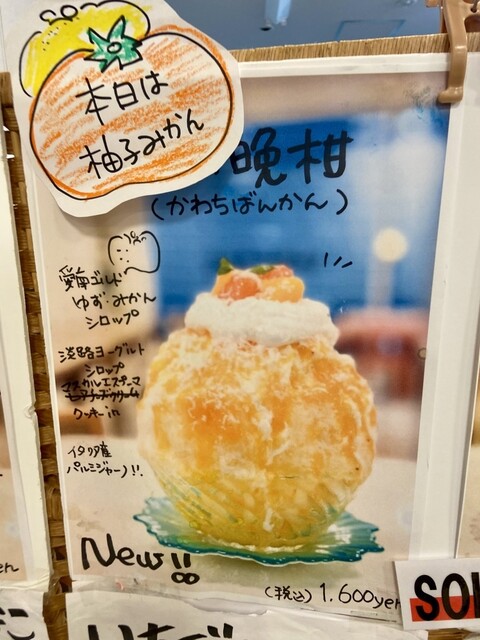 本日は
柚子みかん
晩柑
(かわちばんかん)
愛南ゴールド
ゆず・みかん
シロップ
淡路ヨーグルト
シロップ
マスカルエスプーマ
クッキーin
イタリア産
パルミジャーノ!!
New!!
(税込) 1.600yen
SOL